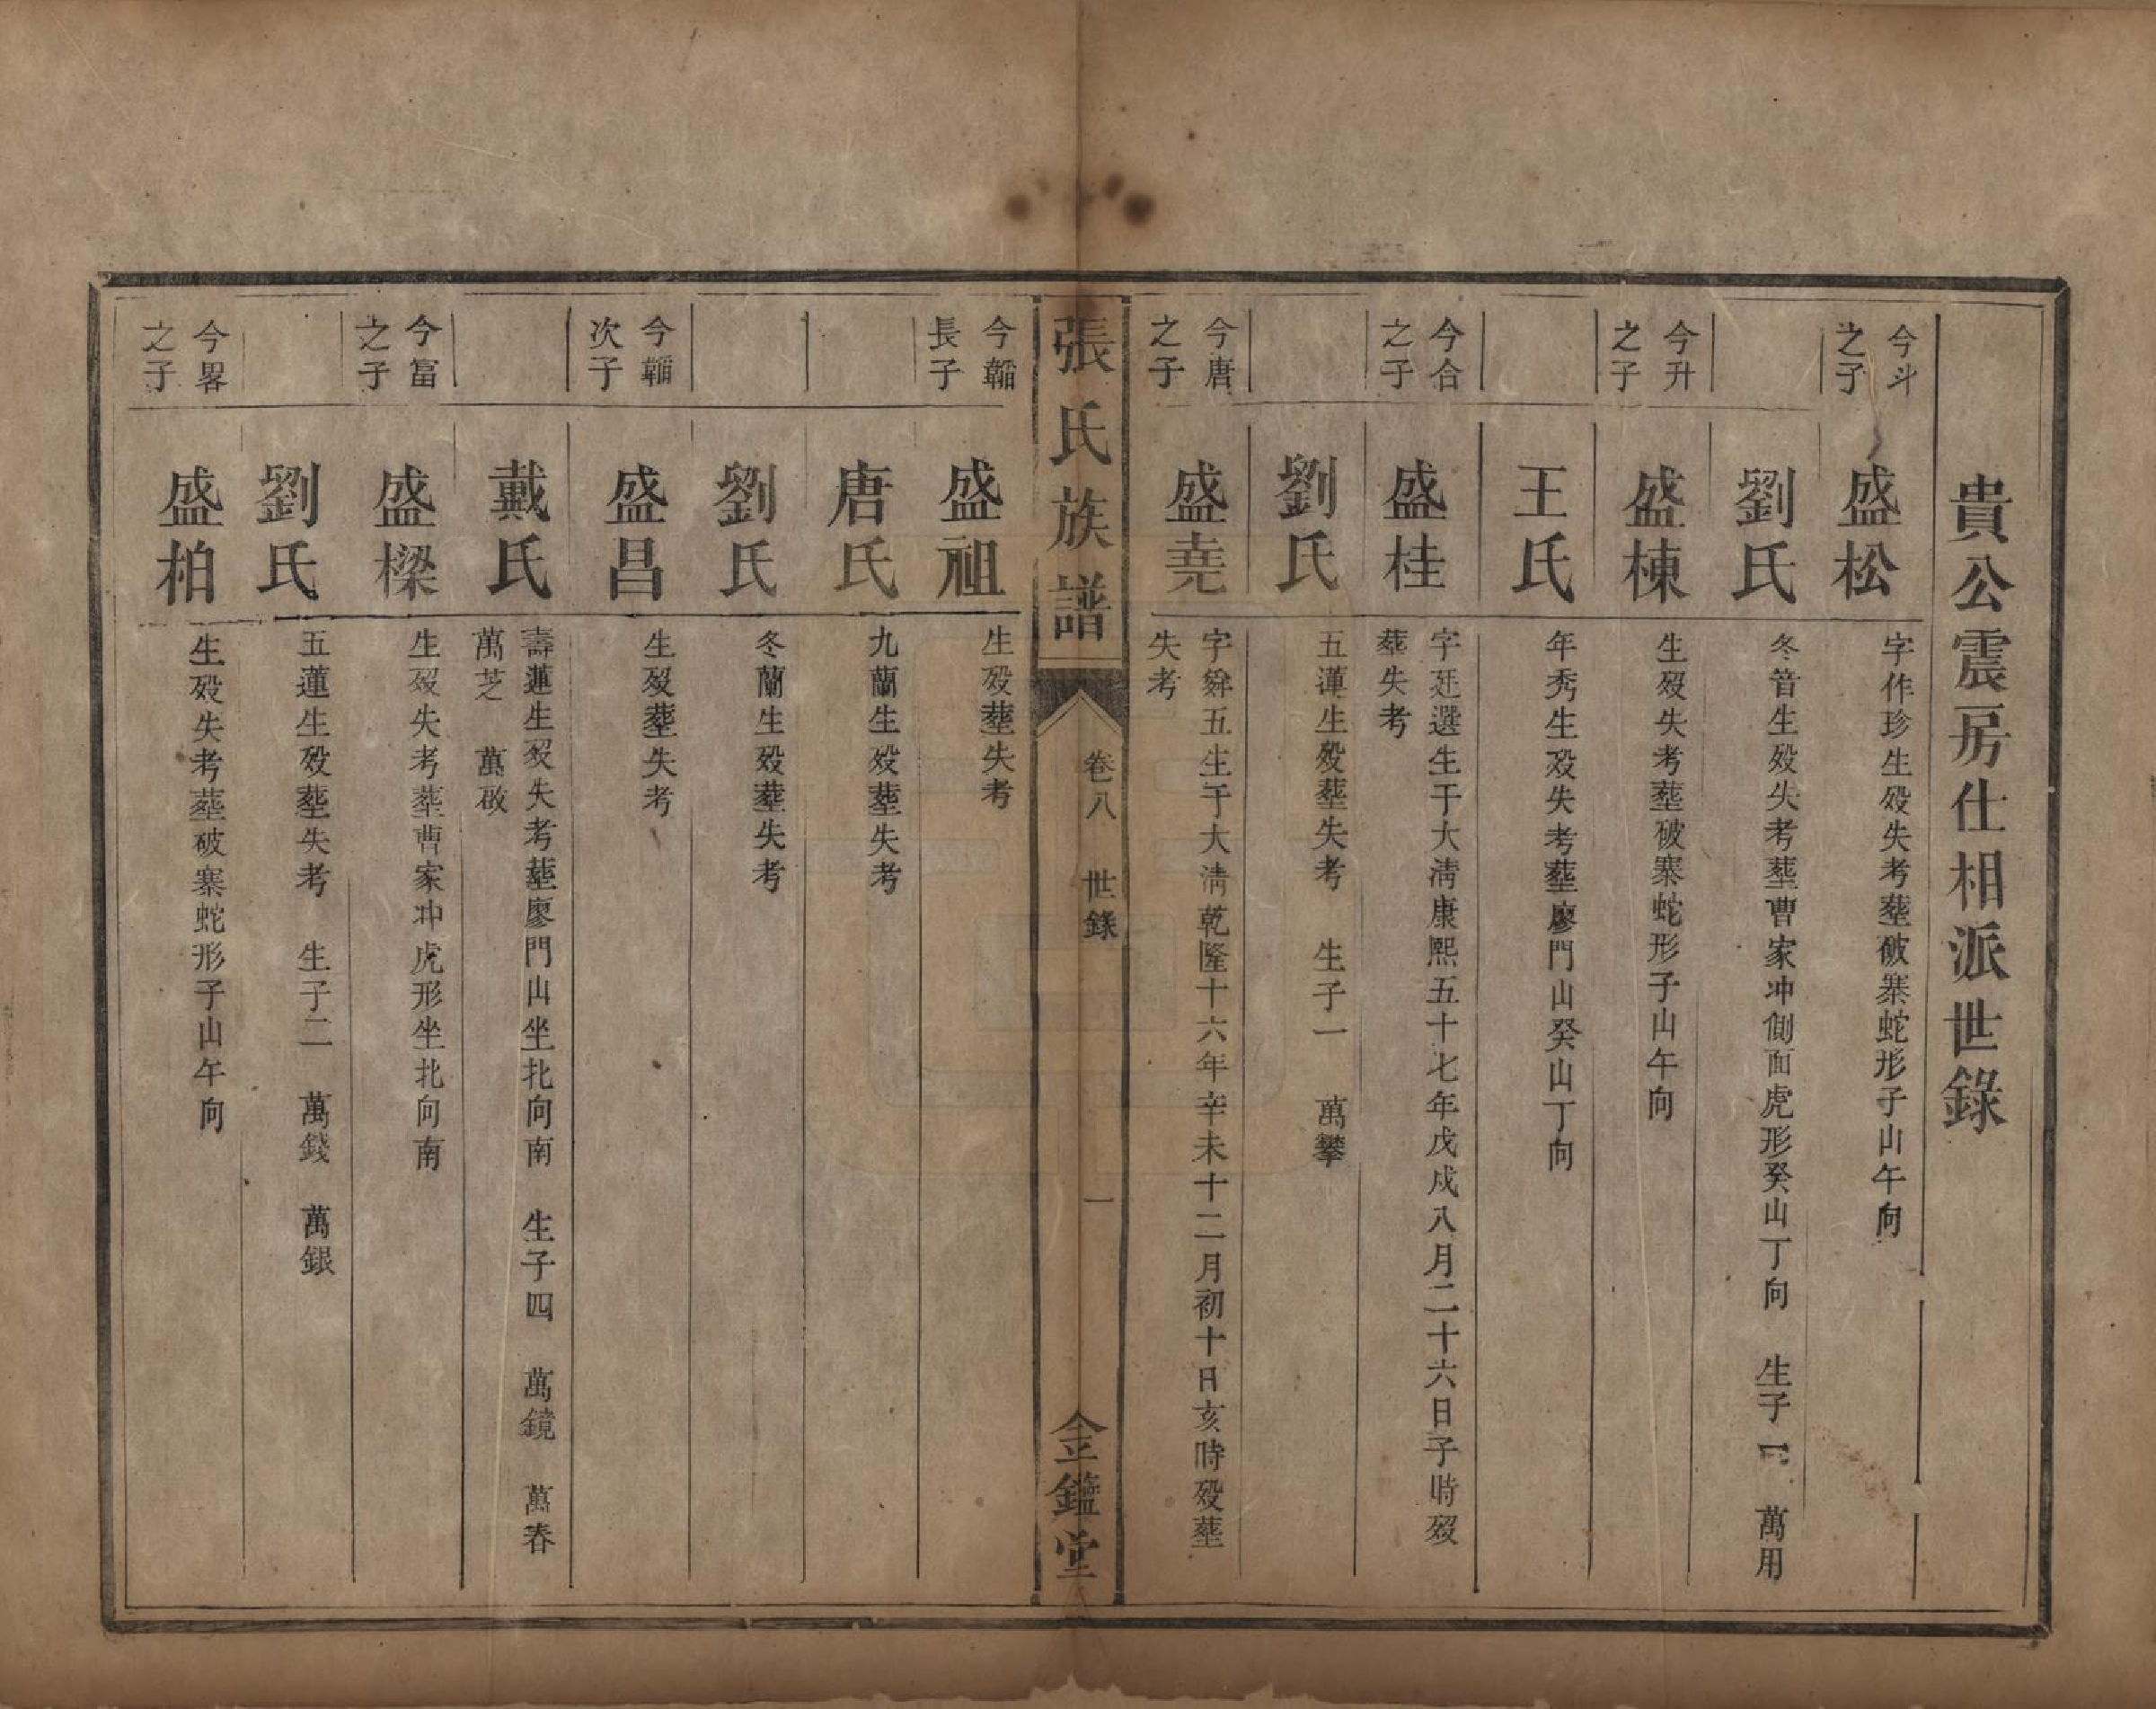 貴公震房仕相派世錄
今斗之子
盛松
字作珍生歿失考塟破寨蛇形子山午向
劉氏
冬音生歿失考塟曹家冲側面虎形癸山丁向 生子一 萬用
今升之子
盛棟
生歿失考塟破寨蛇形子山午向
王氏
年秀生歿失考塟廖門山癸山丁向
今合之子
盛桂
字廷選生于大清康熙五十七年戊戌八月二十六日子時歿
塟失考
劉氏
五蓮生歿塟失考 生子一 萬攀
今唐之子
盛堯
字舜五生于大清乾隆十六年辛未十二月初十日亥時歿塟
失考
張氏族譜
卷八 世錄
一
金鑑堂
今韜長子
盛祖
生歿塟失考
唐氏
九蘭生歿塟失考
劉氏
冬蘭生歿塟失考
今韜次子
盛昌
生歿塟失考
戴氏
壽蓮生歿失考塟廖門山坐北向南 生子四 萬鏡 萬春
萬芝 萬敬
今富之子
盛樑
生歿失考塟曹家冲虎形坐北向南
劉氏
五蓮生歿塟失考 生子二 萬錢 萬銀
今畧之子
盛柏
生歿失考塟破寨蛇形子山午向